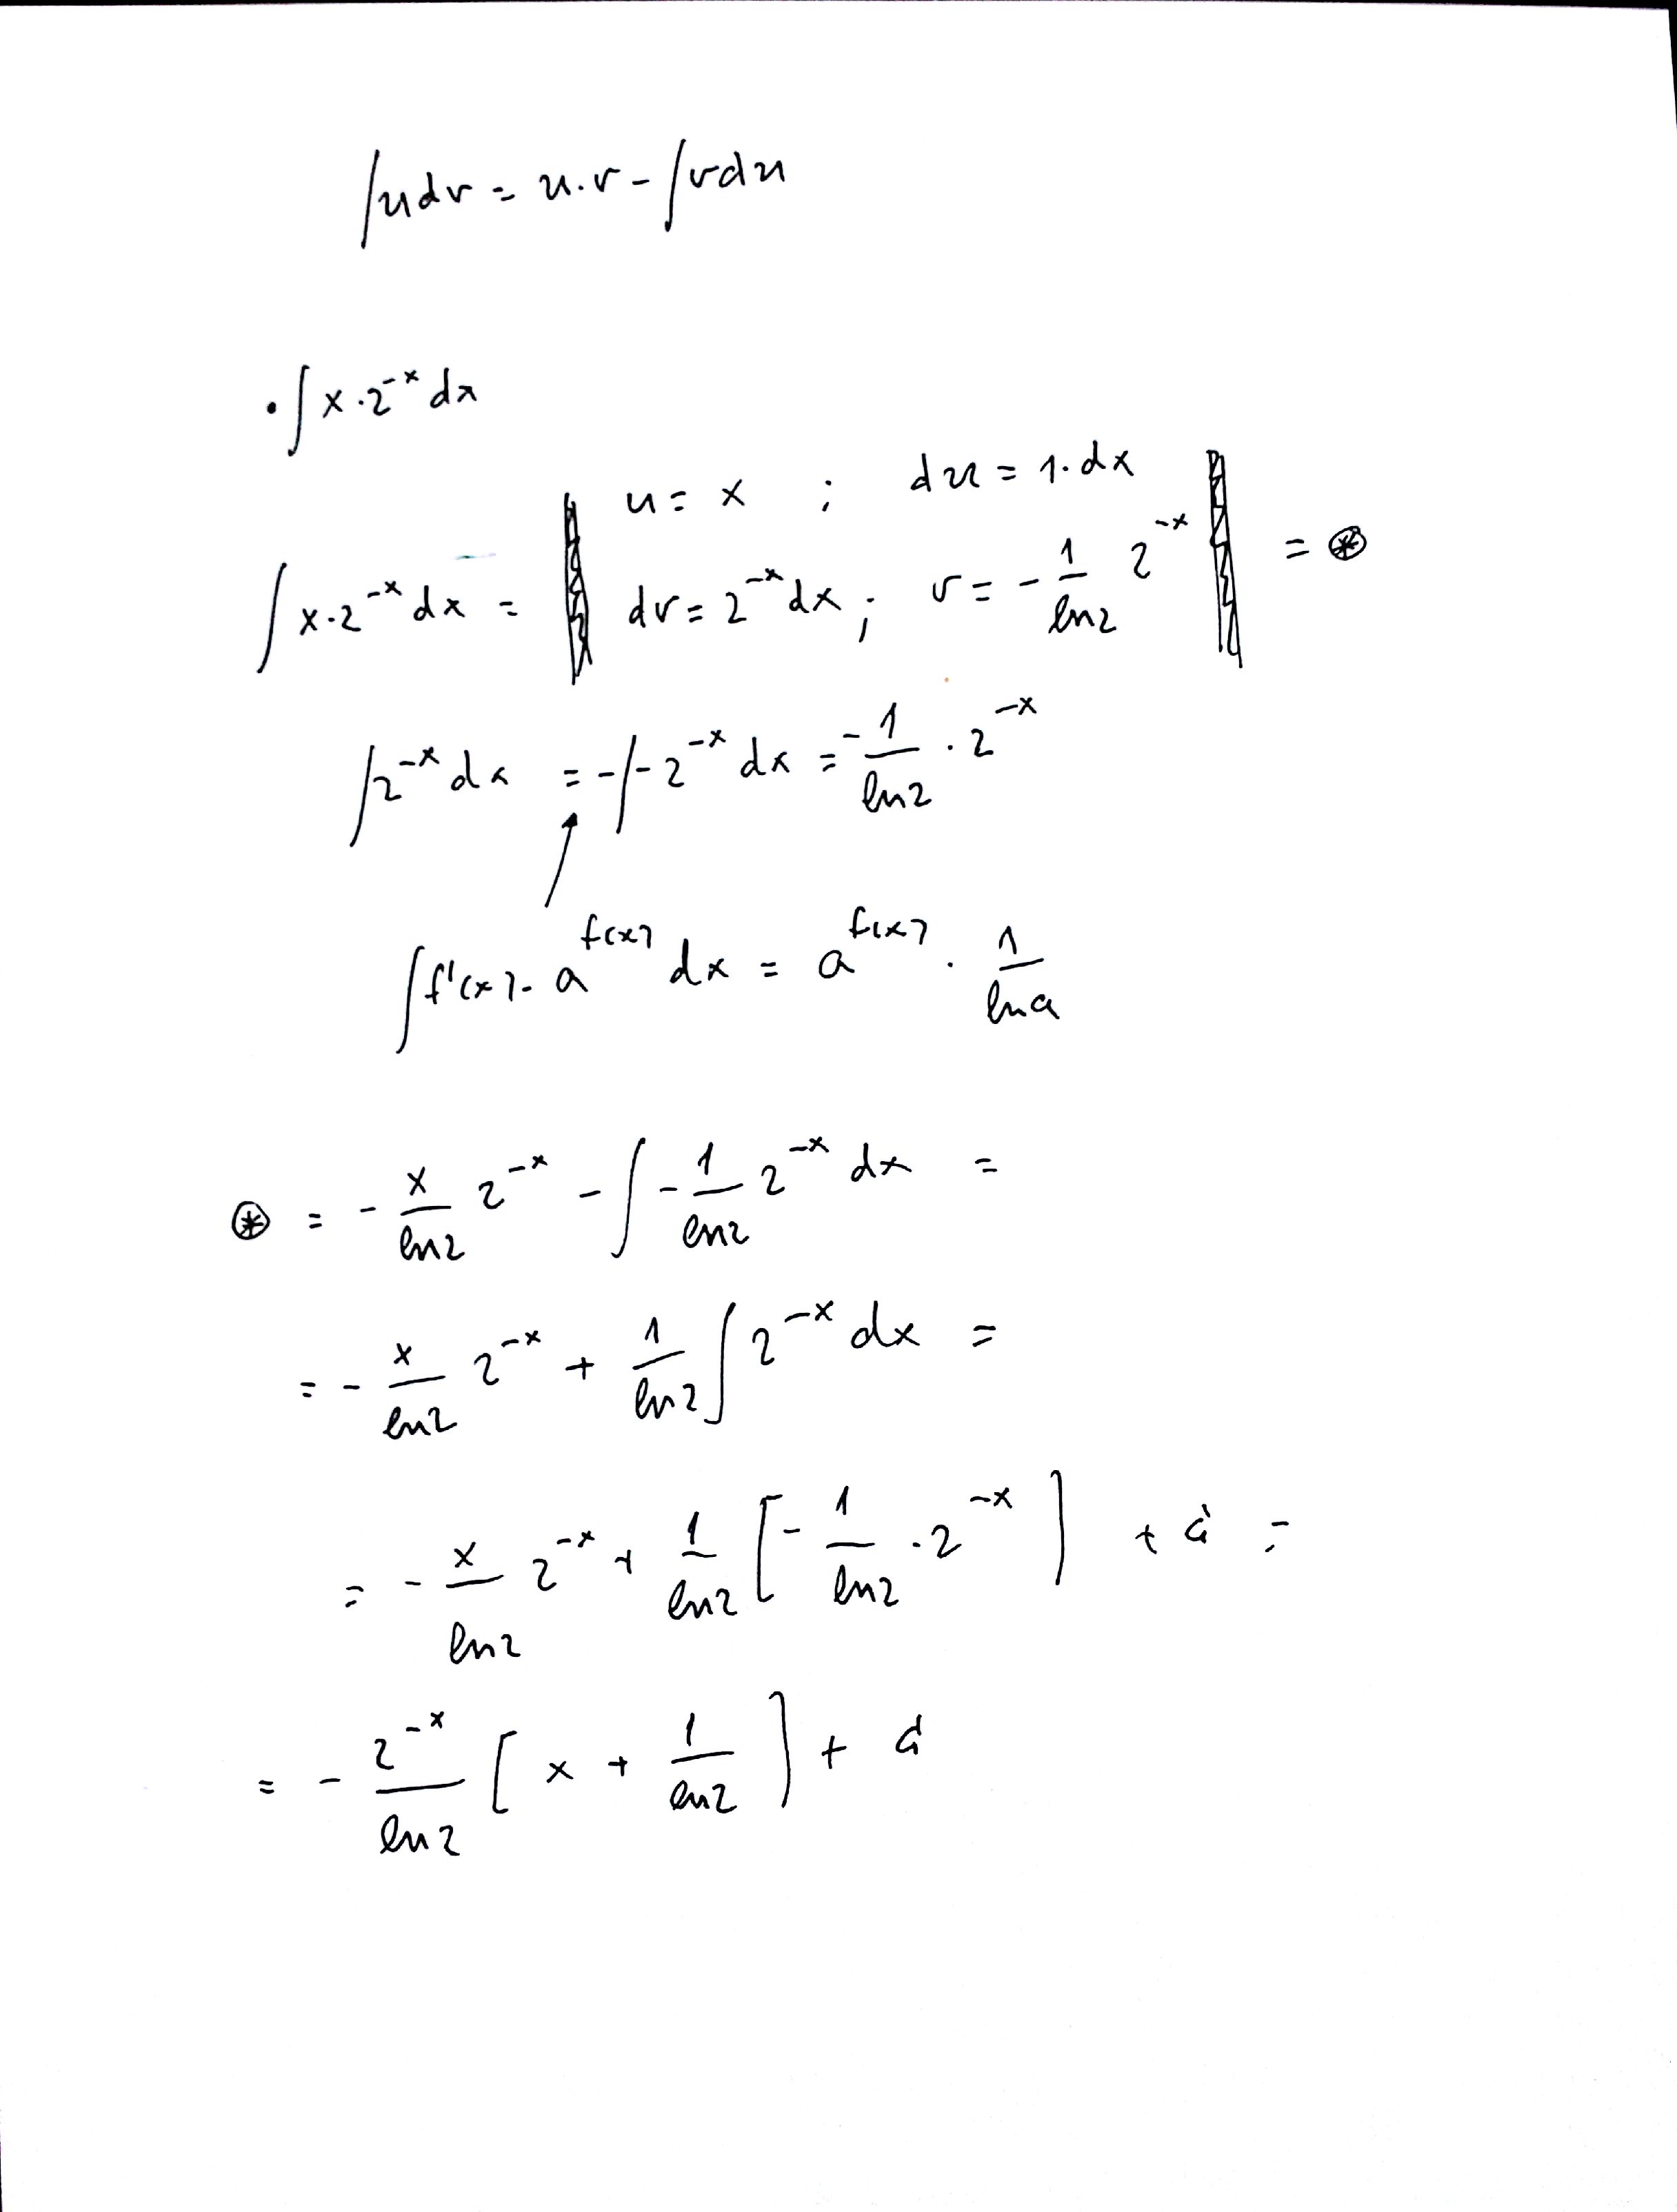 ∫udv = u·v - ∫vdu
• ∫x·2^{-x} dx
u = x ; du = 1·dx
∫x·2^{-x} dx = | dv = 2^{-x} dx ; v = -\frac{1}{ln2} 2^{-x} | = ⊛
∫2^{-x} dx = -∫-2^{-x} dx = -\frac{1}{ln2} · 2^{-x}
∫f'(x)·a^{f(x)} dx = a^{f(x)} · \frac{1}{lna}
⊛ = -\frac{x}{ln2} 2^{-x} - ∫-\frac{1}{ln2} 2^{-x} dx =
= -\frac{x}{ln2} 2^{-x} + \frac{1}{ln2} ∫2^{-x} dx =
= -\frac{x}{ln2} 2^{-x} + \frac{1}{ln2} [-\frac{1}{ln2} · 2^{-x}] + C =
= -\frac{2^{-x}}{ln2} [x + \frac{1}{ln2}] + C